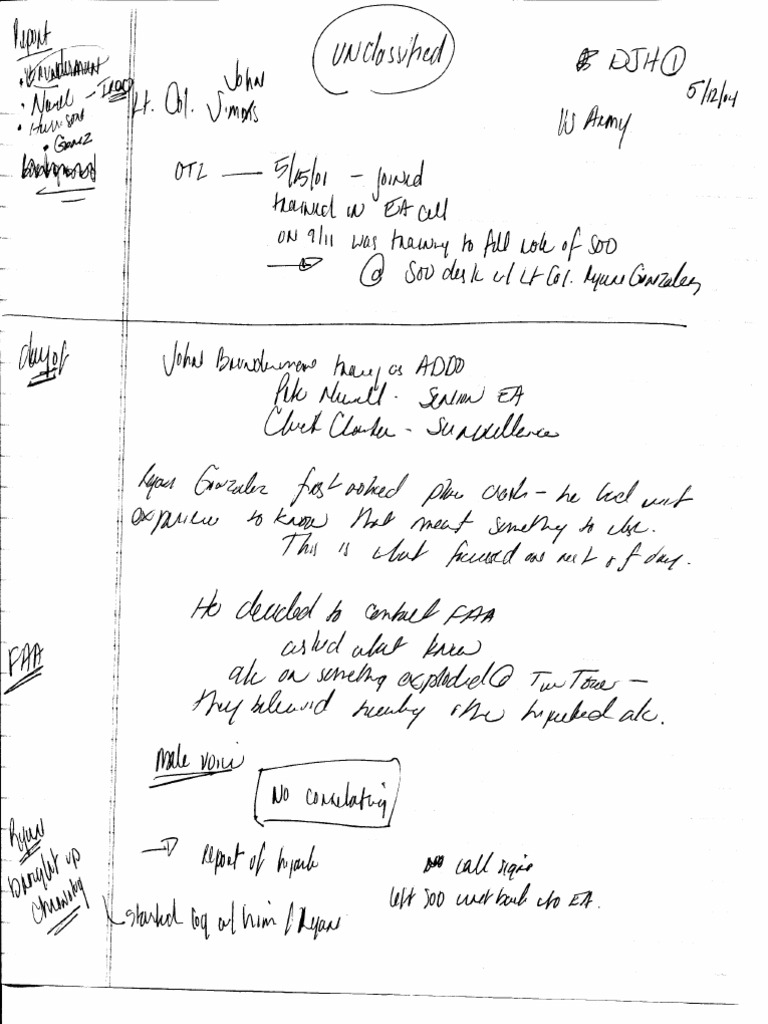 Report
UNCLASSIFIED
DJH ①
5/12/04
Brunderman
Nevel - IRAQ
Harrison
Gomez
Background
Lt. Col. John Simms
US Army
OTZ — 5/15/01 - joined
trained in EA cell
on 9/11 was training to fill role of SOO
→ @ SOO desk w/ Lt Col. Ryan Gonzalez
day of
John Brunderman training as ADDO
Pete - Senior EA
Chuck - Surveillance
Ryan Gonzalez first noticed plane crash - he had
experience to know that meant something to
This is what focused rest of day.
FAA
He decided to contact FAA
asked what knew
a/c or something exploded @ Twin Tower -
they believed hijacked a/c.
Male voice
No correlating
Ryan
brought up
chronolog
→ report of hijack
call signs
left SOO went back into EA.
started log w/ him / Ryan